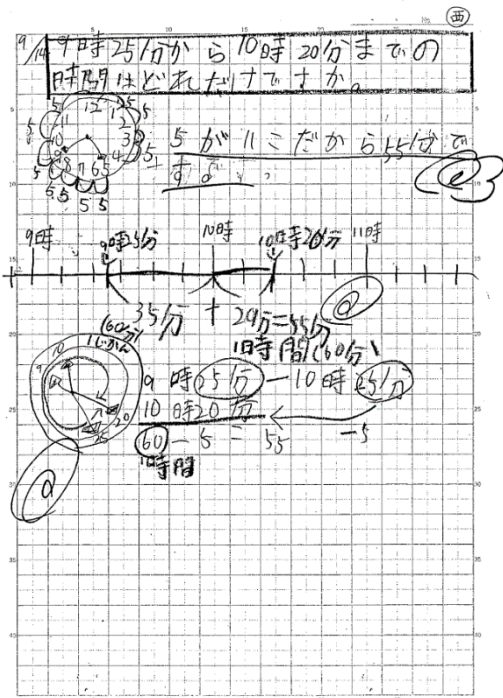 西
9/14
9時25分から10時20分までの
時間はどれだけですか。
5が11こだから55分で
す。
9時 9時25分 10時 10時20分 11時
35分 + 20分=55分
1じかん(60分)
1時間(60分)
9時25分—10時25分
10時20分
-5
60-5=55
1時間